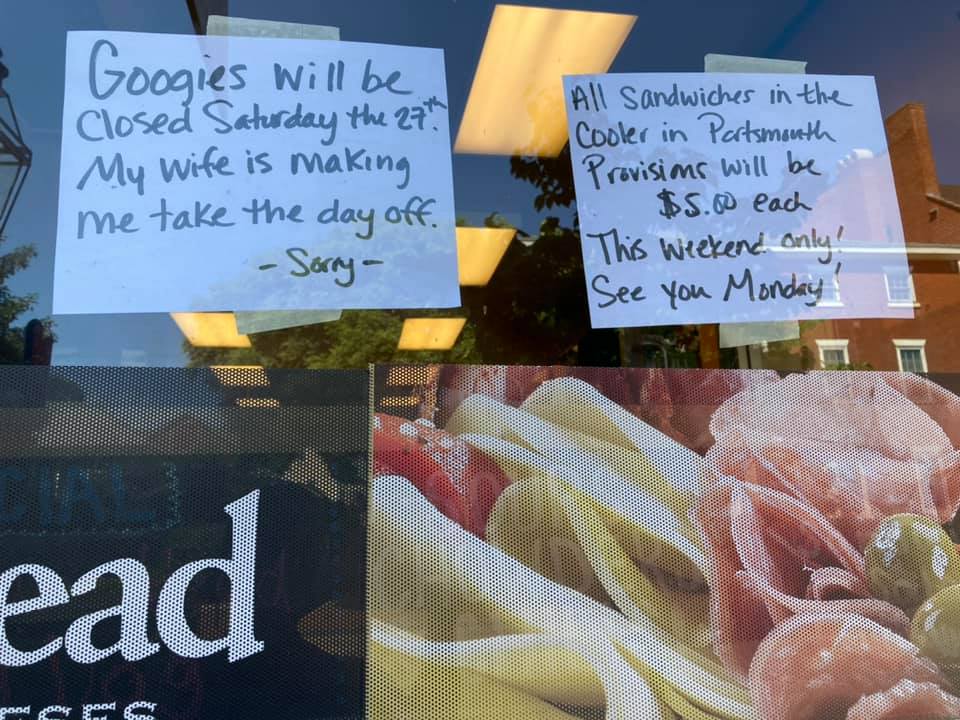 Googies will be
Closed Saturday the 27th.
My wife is making
me take the day off.
- Sorry -
All Sandwiches in the
Cooler in Portsmouth
Provisions will be
$5.00 each
This weekend only!
See you Monday!
CIAL
ead
ESES